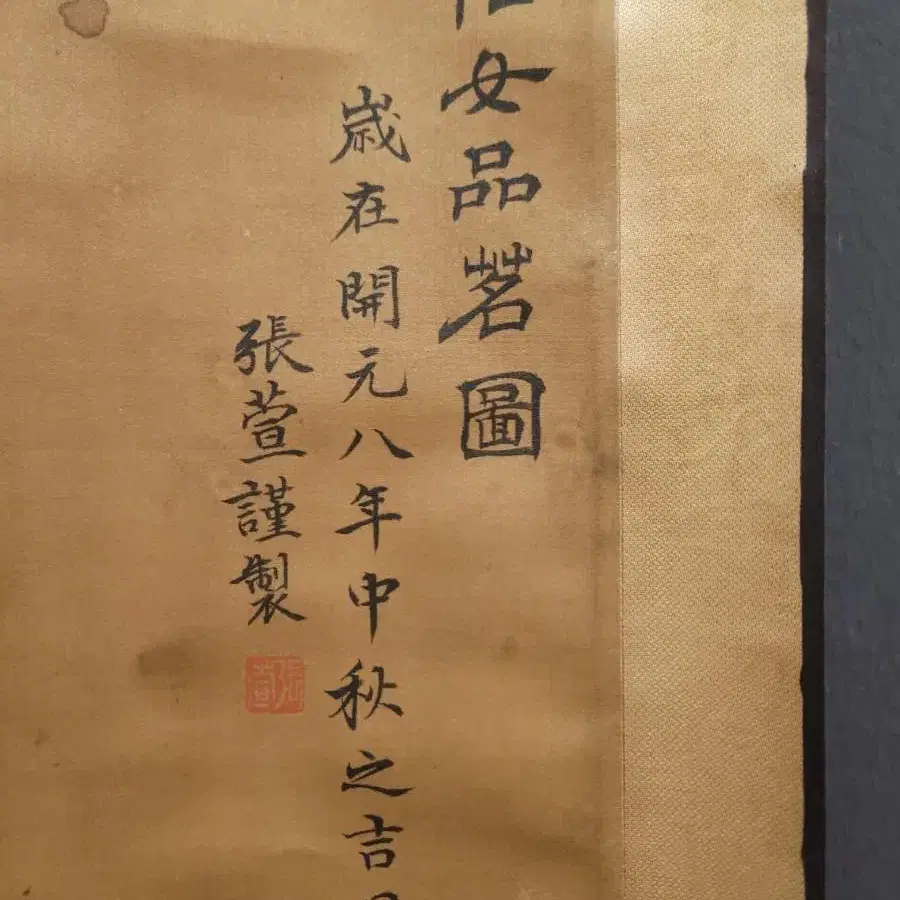 女品茗圖
歲在開元八年中秋之吉
張萱謹製
張萱